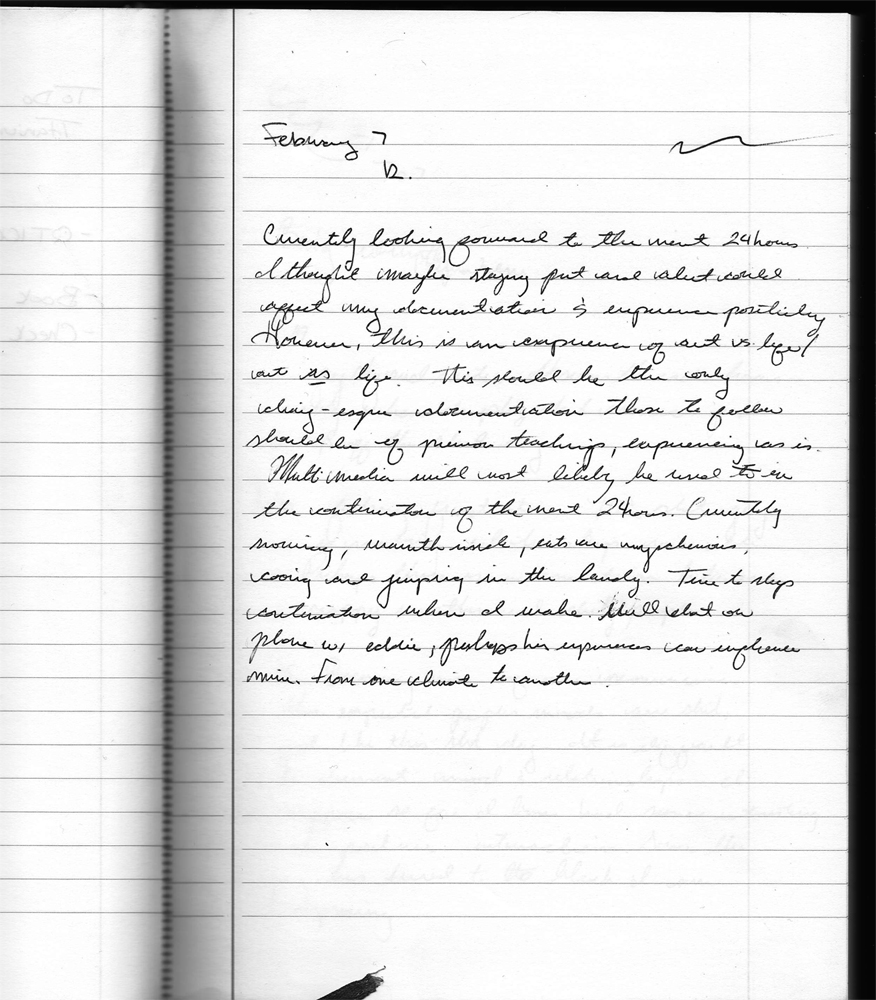 February 7
12.
Currently looking forward to the next 24 hours
I thought maybe staying put and what could
affect my documentation & experience positively
However, this is an experience of art vs. life/
art as life. This should be the only
diary-esque documentation those to follow
should be of previous teachings, experiencing as is.
Multi media will most likely be used to in
the continuation of the next 24 hours. Currently
snowing, warmth inside, cats are mischevious,
cooing and jumping in the. Time to sleep
continuation when I wake. Will chat on
phone w/ eddie, perhaps his experiences can influence
mine. From one climate to another.
To Do
- Book
- Check